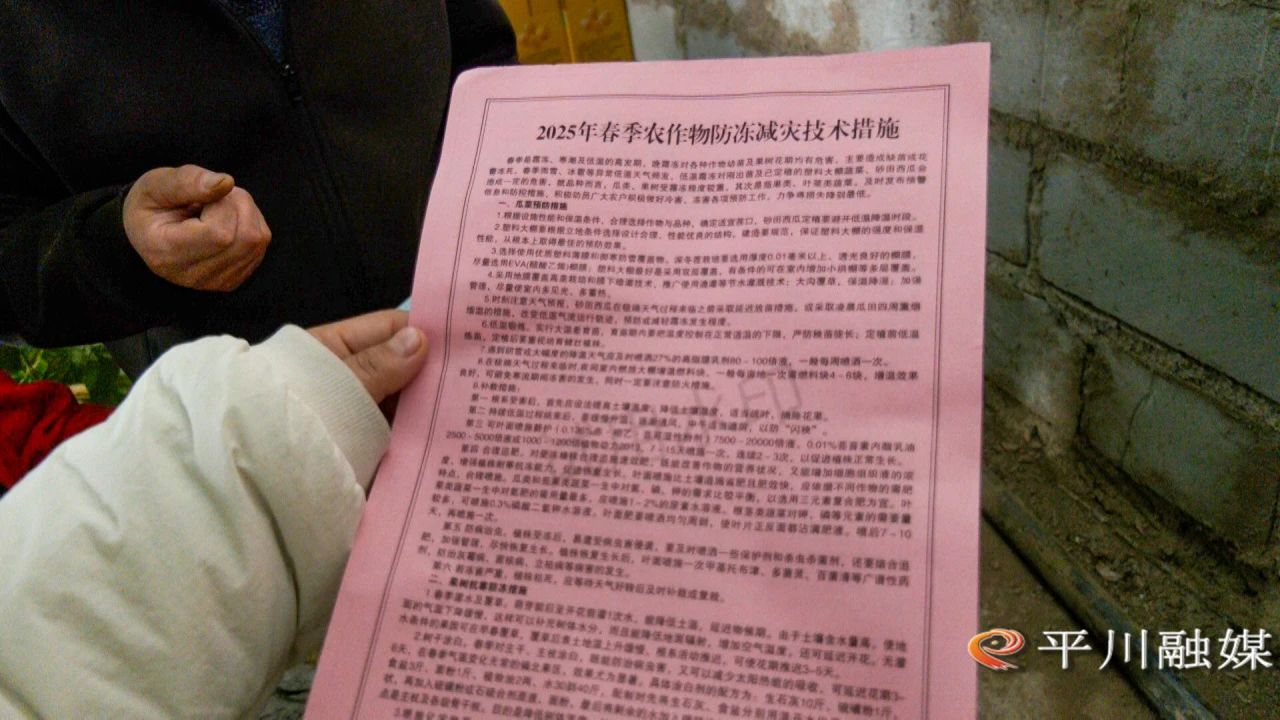 2025年春季农作物防冻减灾技术措施
春季是霜冻、寒潮及低温的高发期，晚霜冻对各种作物幼苗及果树花期均有危害，主要造成缺苗或花
蕾冻死，春季雨雪、冰雹等异常低温天气频发，低温霜冻对刚出苗及已定植的塑料大棚蔬菜、砂田西瓜会
造成一定的危害，就品种而言，瓜类、果树受霜冻程度较重，其次是茄果类、叶菜类蔬菜。及时发布预警
信息和防控措施，积极动员广大农户积极做好冷害、冻害各项预防工作，力争将损失降到最低。
一、瓜菜预防措施
1.根据设施性能和保温条件，合理选择作物与品种，确定适宜茬口，砂田西瓜定植要避开低温降温时段。
2.塑料大棚要根据立地条件选择设计合理、性能优良的结构，建造要规范，保证塑料大棚的强度和保温
性能，从根本上取得最佳的预防效果。
3.选择使用优质塑料薄膜和御寒防雪覆盖物。深冬茬栽培要选用厚度0.01毫米以上、透光良好的棚膜，
尽量选用EVA(醋酸乙烯)棚膜；塑料大棚最好是采用双层覆盖，有条件的可在室内增加小拱棚等多层覆盖。
4.采用地膜覆盖高垄栽培和膜下暗灌技术，推广使用滴灌等节水灌溉技术；大沟覆草，保温降湿；加强
管理，尽量使室内多见光、多蓄热。
5.时刻注意天气预报，砂田西瓜在极端天气过程来临之前采取延迟放苗措施，或采取凌晨瓜田四周熏烟
增温的措施，改变低温气流运行轨迹，预防或减轻霜冻发生程度。
6.低温锻炼。实行大温差育苗，育苗期内要把温度控制在正常适温的下限，严防秧苗徒长；定植前低温
炼苗，定植后要重视培育健壮植株。
7.遇到阴雪或大幅度的降温天气应及时喷洒27%的高脂膜乳剂80－100倍液，一般每周喷洒一次。
8.在极端天气过程来临时,夜间室内燃放大棚增温燃料块，一般每亩地一次需燃料块4－6块，增温效果
良好，可避免寒流期间冻害的发生，同时一定要注意防火措施。
9.补救措施：
第一 根系受害后，首先应设法提高土壤温度、降低土壤湿度，适当疏叶，摘除花果。
第二 持续低温过程结束后，要缓慢升温，逐渐通风，中午适当遮阴，以防“闪秧”。
第三 可叶面喷施碧护（0.136%赤·吲乙·芸苔可湿性粉剂）7500－20000倍液，0.01%芸苔素内酯乳油
2500－5000倍液或1000－1200倍植物动力2003，7－15天喷洒一次，连续2－3次，以促进植株正常生长。
第四 合理追肥。对受冻植株合理点施速效肥，既能改善作物的营养状况，又能增加细胞组织液的浓
度，增强植株耐寒抗冻能力，促进恢复生长。叶面喷施比土壤追施省肥且肥效快，应依据不同作物的需肥
特点，合理喷施。瓜类和茄果类蔬菜一生中对氮、磷、钾的需求比较平衡，以选用三元素复合肥为宜。叶
菜类蔬菜一生中对氮肥的需用量最多，应喷施1－2%的尿素水溶液。根茎类蔬菜对钾、磷等元素的需要量
较多，可喷施0.3%磷酸二氢钾水溶液。叶面肥要喷洒均匀周到，使叶片正反面都沾满肥液。喷后7－10
天，再喷施一次。
第五 防病治虫。植株受冻后，易遭受病虫害侵袭，要及时喷洒一些保护剂和杀虫杀菌剂，还要结合追
肥，加强管理，尽快恢复生长。植株恢复生长后，叶面喷施一次甲基托布津、多菌灵、百菌清等广谱性药
剂，防治灰霉病、菌核病、立枯病等病害的发生。
第六 若冻害严重，植株枯死，应等待天气好转后及时补栽或复栽。
二、果树抗寒防冻措施
1.春季灌水及覆草。萌芽前后至开花前灌1次水，能降低土温，延迟物候期。由于土壤含水量高，使地
面的气温下降缓慢，这样可以补充树体水分，而且能降低地面辐射，增加空气湿度，还可延迟开花。无灌
水条件的果园可在早春覆草，覆草后表土地温上升缓慢，根系活动推迟，可使花期推迟3－5天。
2.树干涂白。春季对主干、主枝涂白，既能防治病虫害，又可以减少太阳热能的吸收，可延迟花期3－
6天，在春季气温变化无常的偏北果区，效果尤为显著。具体涂白剂的配方为：生石灰10斤、硫磺粉1斤、
食盐3斤、面粉1斤、植物油2两、水30到40斤，配制时先将生石灰、食盐分别用温水
状，再加入硫磺粉或石硫合剂渣液、面粉，最后将剩余的水加入
点是主枝及各级骨干枝。目的是降低树体
平川融媒